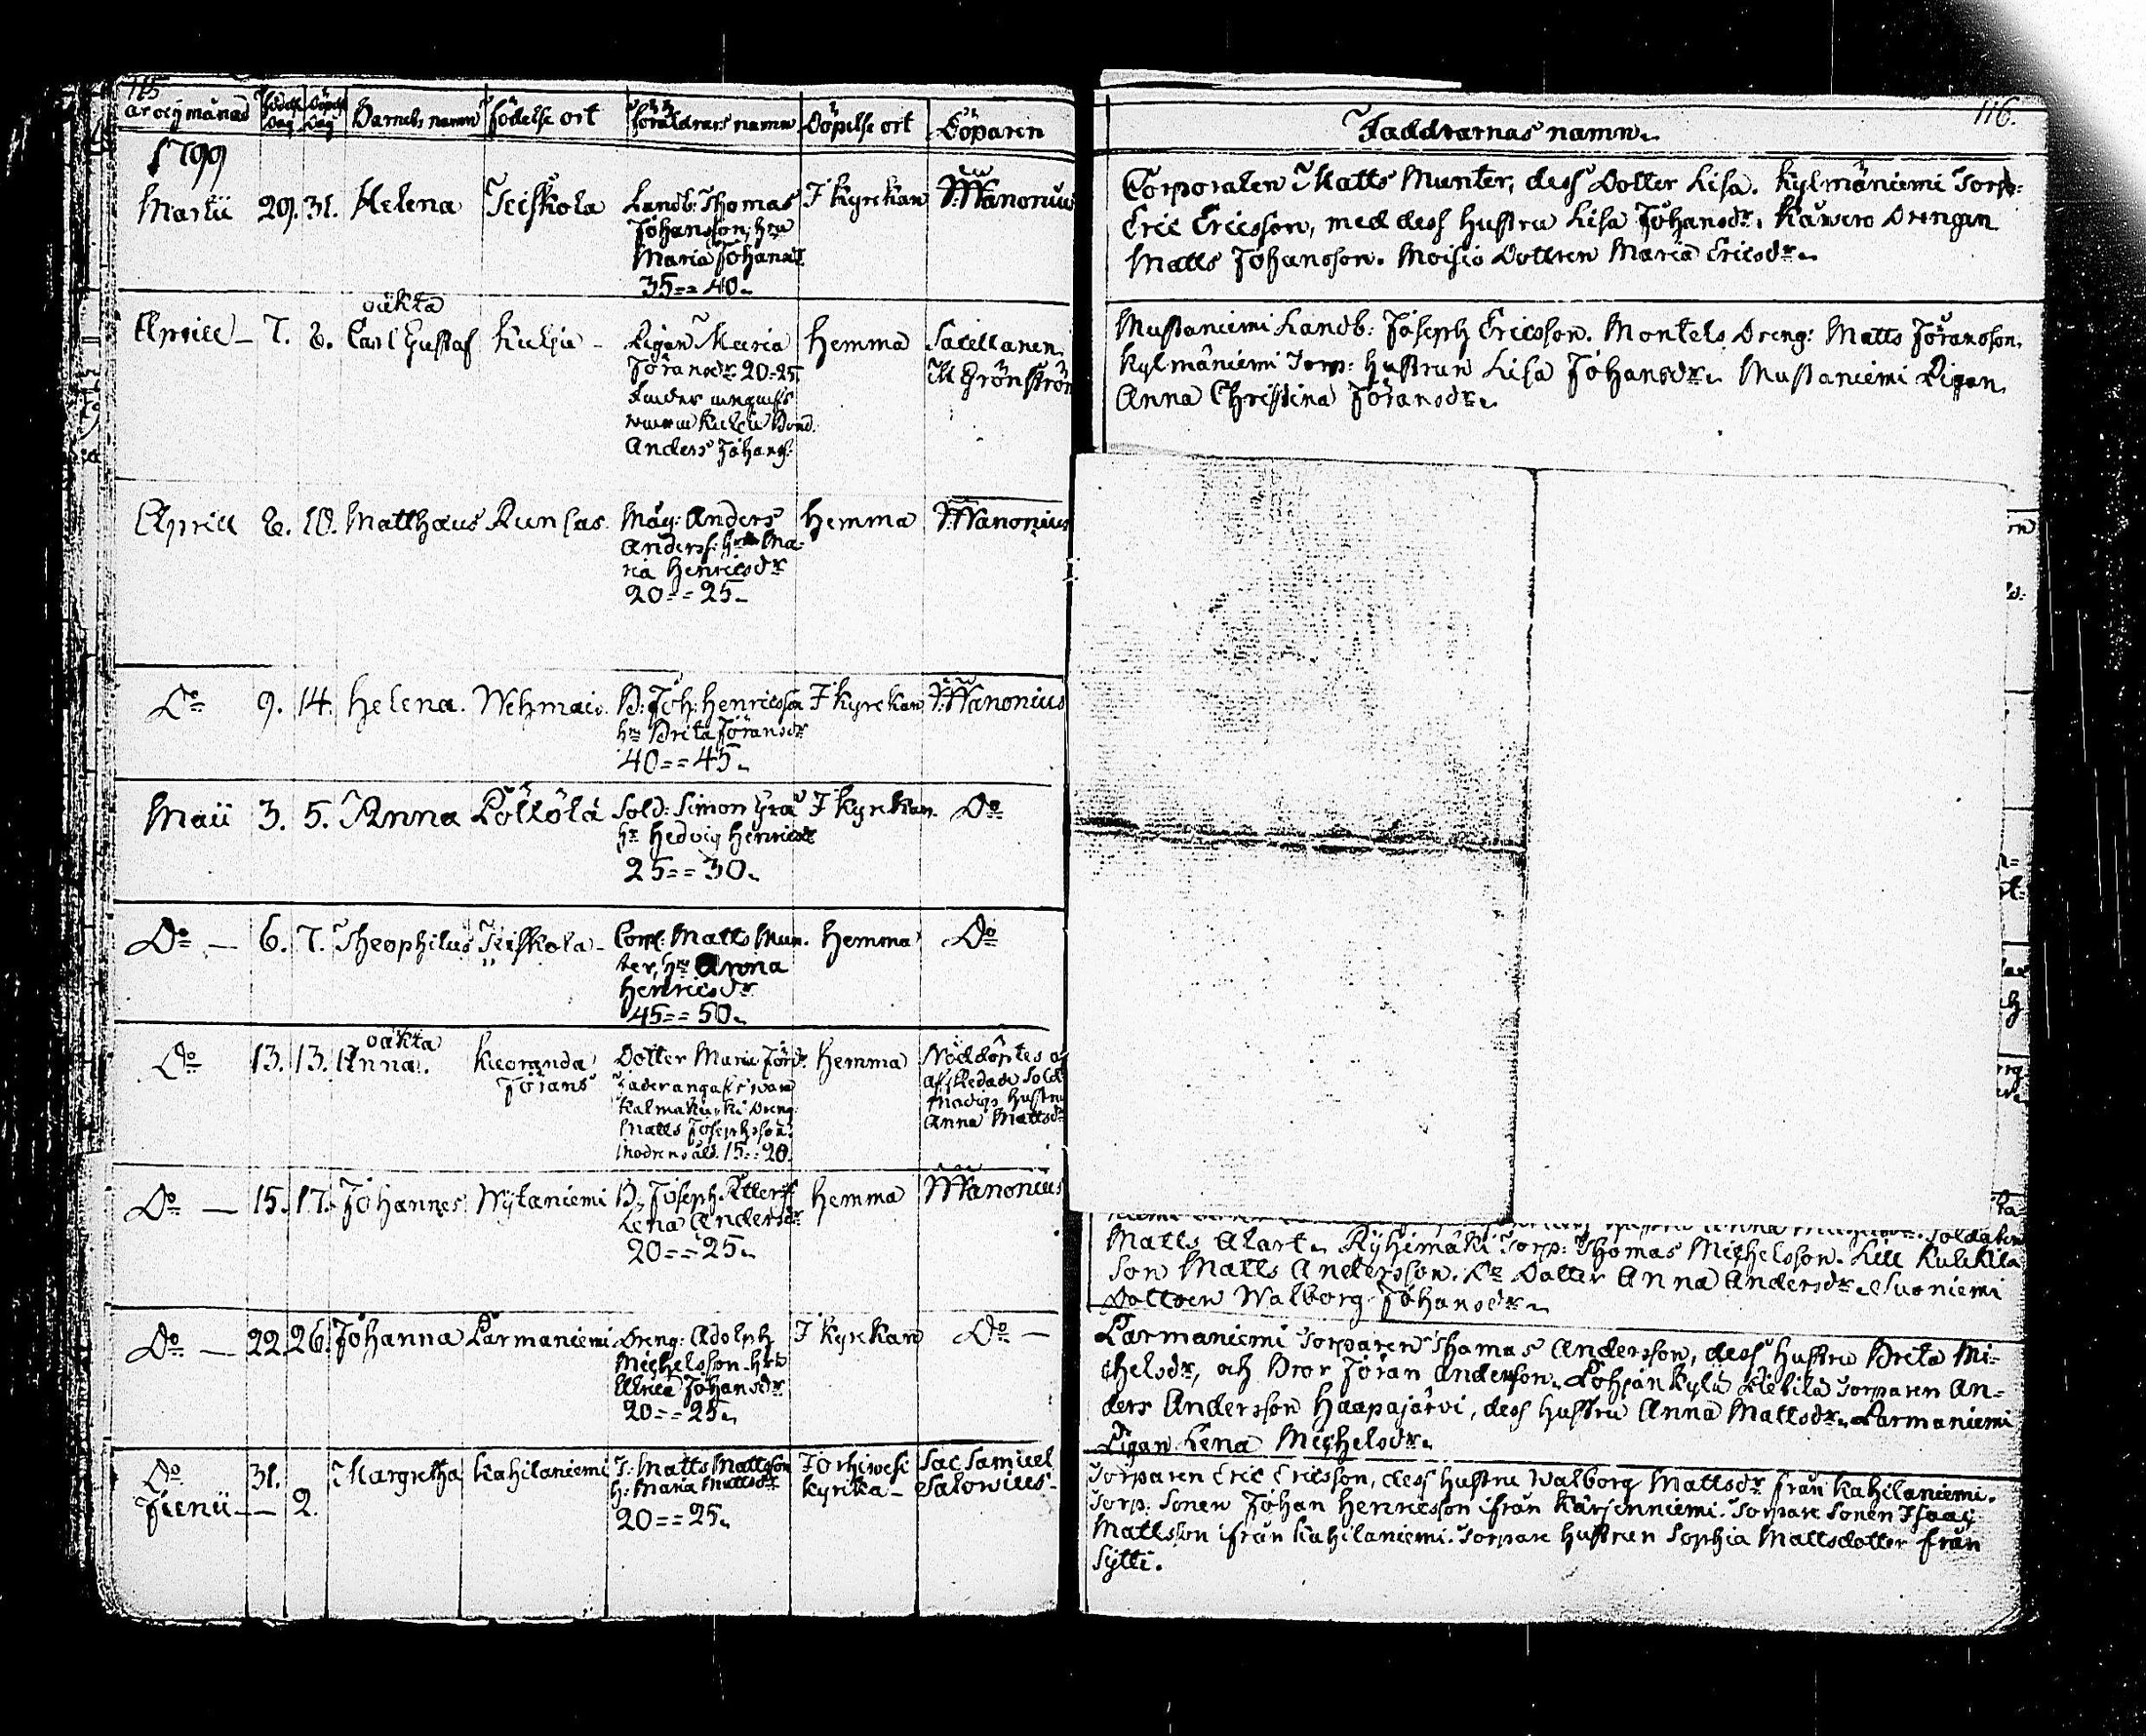 115
År och månad Födelse Dag Döpelse Dag Barnets namn Födelse ort Föräldrars namn Döpelse ort Döparen
1799
Martii 29. 31. Helena Teiskola Landb: Thomas Johansson, hru Maria Johansdr 35 == 40. I kyrckan Wanonius
oäkta
Aprill 7. 8. Carl Gustaf Kulju Pigan Maria Göransdr 20-25 Bond. Anders Johanss: Hemma Sacellanen M Grönström
Aprill 8. 10. Matthæus Runsas. Måg: Anders Anderss: Maria Henricsdr 20 == 25 Hemma Wanonius
Do 9. 14. Helena. Wehmais. B: Joh: Henricsson hru Brita Jöransdr 40 == 45. I kyrckan Wanonius
Maii 3. 5. Anna Pöllölä Sold: Simon Grå hr Hedvig Henricsdr 25 == 30. I kyrckan. Do
Do 6. 7. Theophilus Teiskola Corpl: Matts Munter, hru Anna Henricsdr 45 == 50. Hemma Do
oäkta
Do 13. 13. Anna. Kuoranda Jörans Dotter Maria Kalmakurki Dreng: Matts Josephsson: Modrens åld. 15 == 20. Hemma Nöddöptes afskedade Sold: hustru Anna Mattsdr
Do 15. 17. Johannes Wytaniemi B: Joseph Lena Andersdr 20 == 25. Hemma Wanonius
Do 22. 26. Johanna Parmaniemi Dreng: Adolph Michelsson hru Ulrica Johansdr 20 == 25. I kyrckan Do
Do 31. Junii 2. Margretha Kahilaniemi T: Matts Mattsson h: Maria Mattsdr 20 == 25. Torhiwesi kyrika Sac Samuel Salovius
116.
Faddrarnas namn.
Corporalen Matts Munter, dess Dotter Lisa. Kylmäniemi Torp:
Eric Ericsson, med dess Hustru Lisa Johansdr. Kawero Drengen
Matts Johansson. Moisio Dottren Maria Ericsdr.
Mustaniemi Landb: Joseph Ericsson. Montels Dreng: Matts Jöransson.
Kylmäniemi Torp: Hustrun Lisa Johansdr. Mustaniemi Pigan
Anna Christina Jöransdr.
Matts Alart. Ryhimäki Torp: Thomas Michelsson. Lill Kulckila
Son Matts Andersson. Do Dotter Anna Andersdr. Suoniemi
Dottren Walborg Johansdr.
Parmaniemi Torparen Thomas Andersson, dess Hustru Brita Mi-
chelsdr, och Bror Jöran Andersson. Pohjankylä Torparen An-
ders Andersson Haapajärvi, dess Hustru Anna Mattsdr. Parmaniemi
Pigan Lena Michelsdr.
Torparen Eric Ericsson, dess Hustru Walborg Mattsdr från Kahilaniemi.
Torp: Sonen Johan Henricsson ifrån Kärjenniemi. Torpare Sonen Isaac
Mattsson ifrån Kahilaniemi. Torpare Hustrun Sophia Mattsdotter från
Sytti.